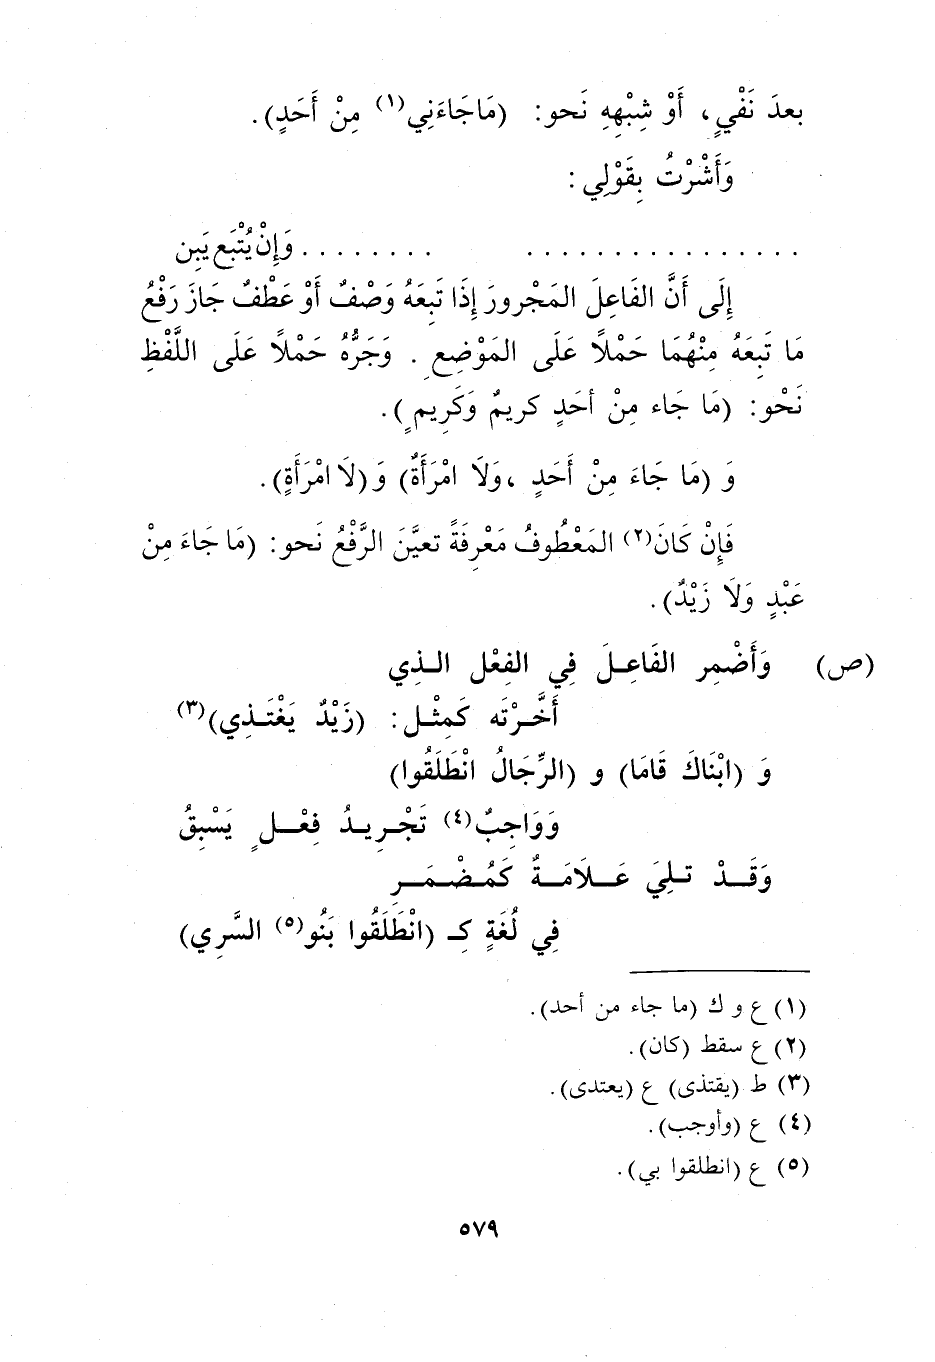 بعدَ نَفْيٍ، أَوْ شِبْهِهِ نَحو: (مَاجَاءَنِي(١) مِنْ أَحَدٍ).
وَأَشْرْتُ بِقَوْلِي:
................ ........ وَإِنْ يُتْبَع يَبِن
إِلَى أَنَّ الفَاعِلَ المَجْرورَ إِذَا تَبِعَهُ وَصْفٌ أَوْ عَطْفٌ جَازَ رَفْعُ
مَا تَبِعَهُ مِنْهُمَا حَمْلاً عَلَى المَوْضِعِ . وَجَرُّهُ حَمْلاً عَلَى اللَّفْظِ
نَحْو: (مَا جَاء مِنْ أحَدٍ كريمٌ وَكَرِيمٍ).
وَ (مَا جَاءَ مِنْ أَحَدٍ ،وَلَا امْرَأَةٌ) وَ(لَا امْرَأَةٍ).
فَإِنْ كَانَ(٢) المَعْطُوفُ مَعْرِفَةً تعيَّنَ الرَّفْعُ نَحو: (مَا جَاءَ مِنْ
عَبْدٍ وَلَا زَيْدٌ).
(ص) وَأَضْمِر الفَاعِـلَ فِي الفِعْل الـذِي
أَخَّـرْتَه كَمِثْـل: (زَيْدٌ يَغْتَـذِي)(٣)
وَ (ابْنَاكَ قَامَا) و (الرِّجَالُ انْطَلَقُوا)
وَوَاجِبٌ(٤) تَجْـرِيـدُ فِعْـلٍ يَسْبِقُ
وَقَـدْ تـلِيَ عَـلاَمَـةٌ كَمُـضْـمَـرِ
فِي لُغَةٍ كِـ (انْطَلَقُوا بَنُو(٥) السَّرِي)
(١) ع و ك (ما جاء من أحد).
(٢) ع سقط (كان).
(٣) ط (يقتذى) ع (يعتدى).
(٤) ع (وأوجب).
(٥) ع (انطلقوا بي).
٥٧٩